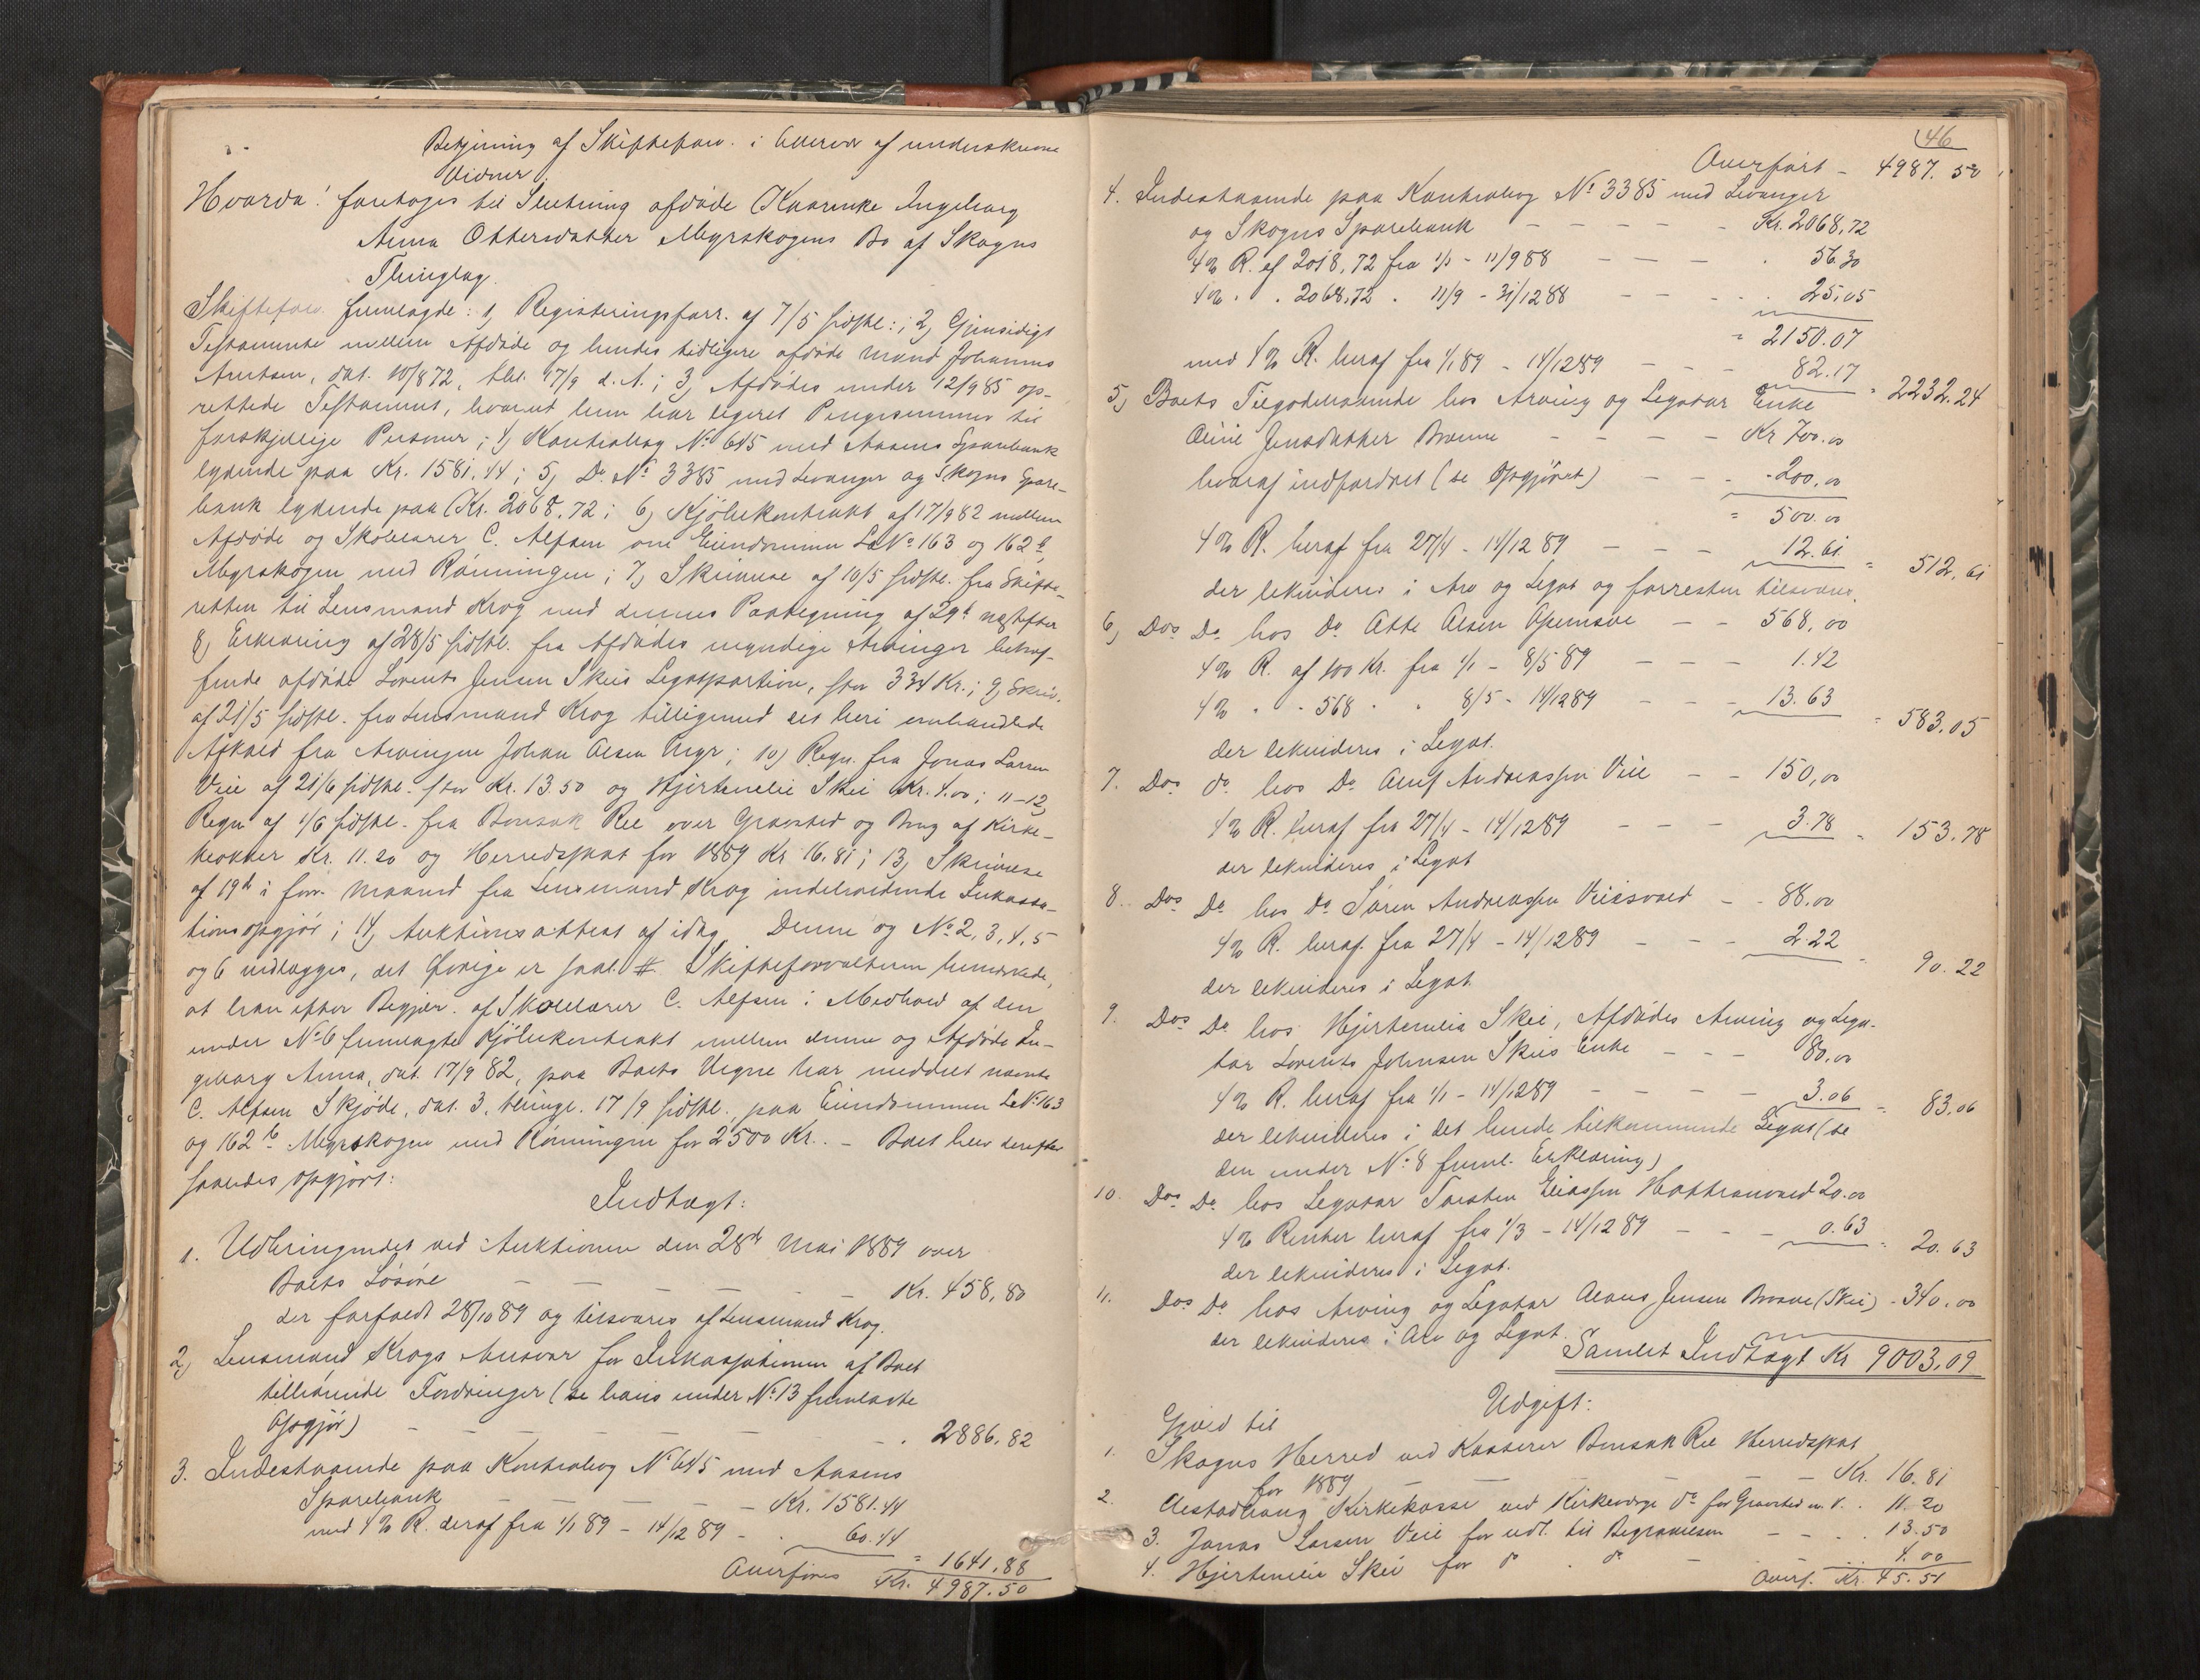 Betjening af Skifteforv. i Overvær af underskrevne
Vidner.
Hvorda: foretoges til Slutning afdøde Kaarenke Ingeborg
Anna Ottersdatter Myrskogens Bo af Skogns
Thinglag.
Skifteforv. fremlagde: 1, Registreringsforr. af 7/5 sidstl.; 2, Gjensidigt
Testamente mellem Afdøde og hendes tidligere afdøde Mand Johannes
Arntsen, dat. 10/8 72, thl. 17/9 d. A.; 3, Afdødes under 12/9 85 op-
rettede Testament, hvorved hun har legeret Pengesummer til
forskjellige Personer; 4, Kontrabog No 645 med Aasens Sparebank
lydende paa Kr. 1581.44; 5, Do No 3385 med Levanger og Skogns Spare-
bank lydende paa Kr. 2068.72; 6, Kjøbekontrakt af 17/9 82 mellem
Afdøde og Skolelærer C. Alfsen om Eiendommen LNo 163 og 162b
Myrskogen med Rønningen; 7, Skrivelse af 10/5 sidstl. fra Skifte-
retten til Lensmand Krog med dennes Paategning af 29d næstefter
8, Erklæring af 28/5 sidstl. fra Afdødes myndige Arvinger betræf-
fende afdøde Lorents Jensen Skeis Legatportion, stor 334 Kr.; 9, Skriv.
af 21/5 sidstl. fra Lensmand Krog tilligemed det heri omhandlede
Afkald fra Arvingen Johan Olsen Myr; 10, Regn. fra Jonas Larsen
Veie af 21/6 sidstl. stor Kr. 13.50 og Hjertenelie Skei Kr. 4.00; 11-12,
Regn af 1/6 sidstl. fra Bensak Ree over Gravsted og Brug af Kirke-
klokker Kr. 11.20 og Herredsskat for 1889 Kr 16.81; 13, Skrivelse
af 19d i forr. Maaned fra Lensmand Krog indeholdende Inkassa-
tionsopgjør; 14, Auktionsattest af idag. Denne og No 2, 3, 4, 5
og 6 vedlægges, det Øvrige er saal. #. Skifteforvalteren bemærkede,
at han efter Begjær. af Skolelærer C. Alfsen i Medhold af den
under No 6 fremlagte Kjøbekontrakt mellem denne og Afdøde In-
geborg Anna, dat. 17/9 82, paa Boets Vegne har meddelt nævnte
C. Alfsen Skjøde, dat. 3, thingl. 17/9 sidstl., paa Eiendommen LNo 163
og 162b Myrskogen med Rønningen for 2500 Kr. - Boet blev derefter
saaledes opgjort:
Indtægt:
1. Udbringendet ved Auktionen den 28de Mai 1889 over
Boets Løsøre - - - - Kr. 458,80
der forfaldt 28/10 89 og tilsvares af Lensmand Krog.
2, Lensmand Krogs Ansvar for Inkassationen af Boet
tilhørende Fordringer (se hans under No 13 fremlagte
Opgjør) - - - - - - . 2886.82
3. Indestaaende paa Kontrabog No 645 med Aasens
Sparebank - - - - - Kr. 1581.44
med 4% R. deraf fra 1/1 89 - 14/12 89 - . 60.44
= 1641.88
Overføres Kr. 4987.50
46
Overført - 4987.50
4. Indestaaende paa Kontrabog No 3385 med Levanger
og Skogns Sparebank - - - - - Kr. 2068,72
4% R. af 2018,72 fra 1/1 - 11/9 88 - - - . 56.30
4% . . 2068,72 . 11/9 - 31/12 88 - - - . 25,05
= 2150.07
med 4% R. heraf fra 1/1 89 - 14/12 89 - - - 82.17
= 2232.24
5, Boets Tilgodehavende hos Arving og Legatar Enke
Oline Jensdatter Brænne - - - - Kr 700.00
hvoraf indfordret (se Opgjøret) - - - 200,00
= 500.00
4% R. heraf fra 27/4 - 14/12 89 - - - 12.61
= 512,61
der lekvideres i Arv og Legat og forresten tilsvares.
6, Dos Do hos Do Atte Olsen - - 568,00
4% R. af 100 Kr. fra 1/1 - 8/5 89 - - - 1.42
4% . . 568 . . 8/5 - 14/12 89 - - - 13.63
= 583.05
der lekvideres i Legat.
7. Dos do hos Do Oluf Andreassen Veie - - 150,00
4% R. heraf fra 27/4 - 14/12 89 - - - 3.78 = 153.78
der lekvideres i Legat
8. Dos Do hos Do Søren Andreassen Veiesvald - - 88.00
4% R. heraf fra 27/4 - 14/12 89 - - - 2.22
= 90.22
der lekvideres i Legat.
9. Dos Do hos Hjertenelia Skei, Afdødes Arving og Lega-
tar Lorents Johnsen Skeis Enke - - - 80.00
4% R. heraf fra 1/1 - 14/12 89 - - - 3.06 = 83.06
der lekvideres i det hende tilkommende Legat (se
den under No 8 freml. Erklæring)
10. Dos Do hos Legatar Torsten Eliassen 20.00
4% Renter heraf fra 1/3 - 14/12 89 - - - 0.63 = 20.63
der lekvideres i Legat.
11. Dos Do hos Arving og Legatar Olaus Jensen (Skei) - 340.00
der lekvideres i Arv og Legat.
Samlet Indtægt Kr 9003,09
Udgift:
Gjæld til
1. Skogns Herred ved Kasserer Bensak Ree Herredsskat
for 1889 - - - - - Kr. 16.81
2. Kirkekasse ved Kirkeværge do for Gravsted m.v. . 11.20
3. Jonas Larsen Veie for udl. til Begravelsen - - - . 13.50
4. Hjertenelie Skei for do . do - 4.00
Overf. Kr. 45.51